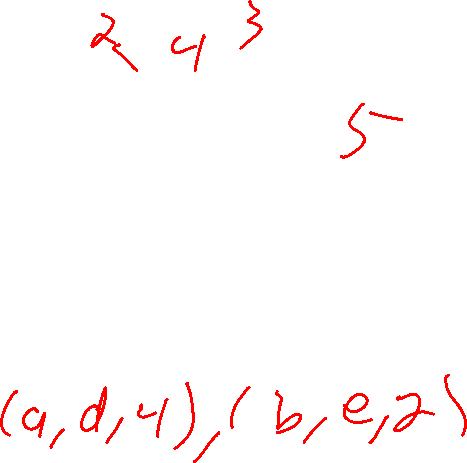 2 4 3
5
(a,d,4),(b,e,2)